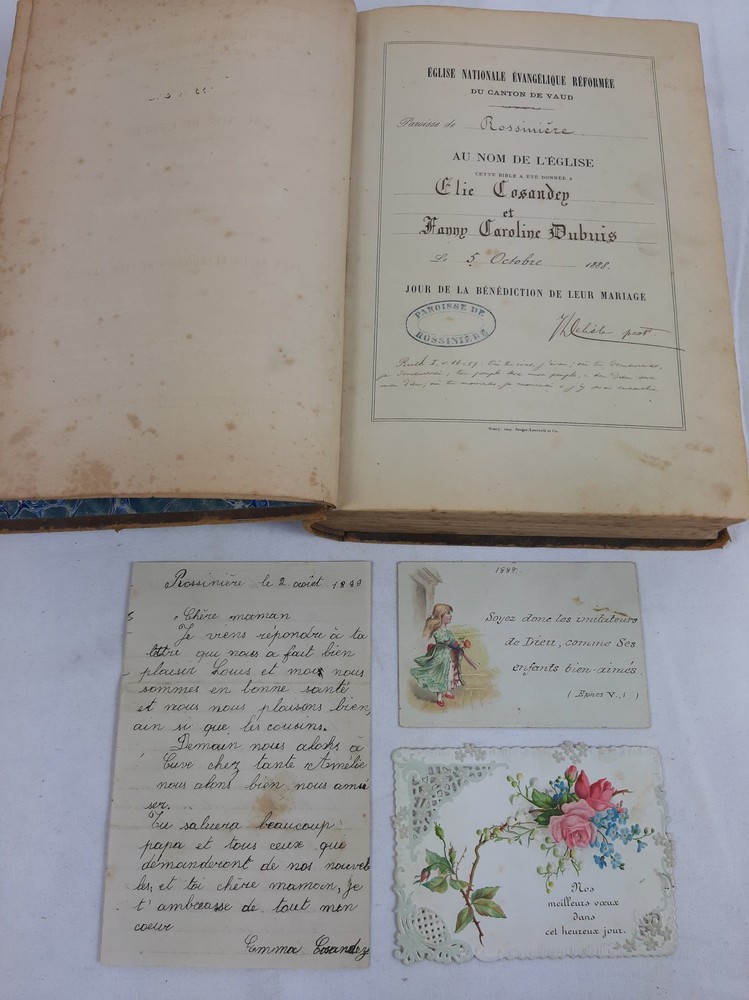 ÉGLISE NATIONALE ÉVANGÉLIQUE RÉFORMÉE
DU CANTON DE VAUD
Paroisse de Rossinière
AU NOM DE L'ÉGLISE
CETTE BIBLE A ÉTÉ DONNÉE A
Elie Cosandey
et
Fanny Caroline Dubuis
Le 5 Octobre 1888.
JOUR DE LA BÉNÉDICTION DE LEUR MARIAGE
PAROISSE DE
ROSSINIÈRE
past
Ruth I, v. 16-17: où tu iras, j'irai; où tu demeureras,
je demeurerai; ton peuple sera mon peuple, & ton Dieu sera
mon Dieu; où tu mourras, je mourrai & j'y serai
Nancy, imp. Berger-Levrault et Cie.
Rossinière le 2 août 1899
Chère maman
Je viens répondre à ta
lettre qui nous a fait bien
plaisir Louis et moi nous
sommes en bonne santé
et nous nous plaisons bien,
ain si que les cousins.
Demain nous alons à
Cuve chez tante Amélie
nous alons bien nous amu
ser.
Tu saluera beaucoup
papa et tous ceux qui
demanderont de nos nouvel
les, et toi chère maman, je
t'ambrasse de tout mon
coeur
Emma Cosandey
Soyez donc les imitateurs
de Dieu, comme Ses
enfants bien-aimés.
(Ephes V., 1.)
Nos
meilleurs vœux
dans
cet heureux jour.